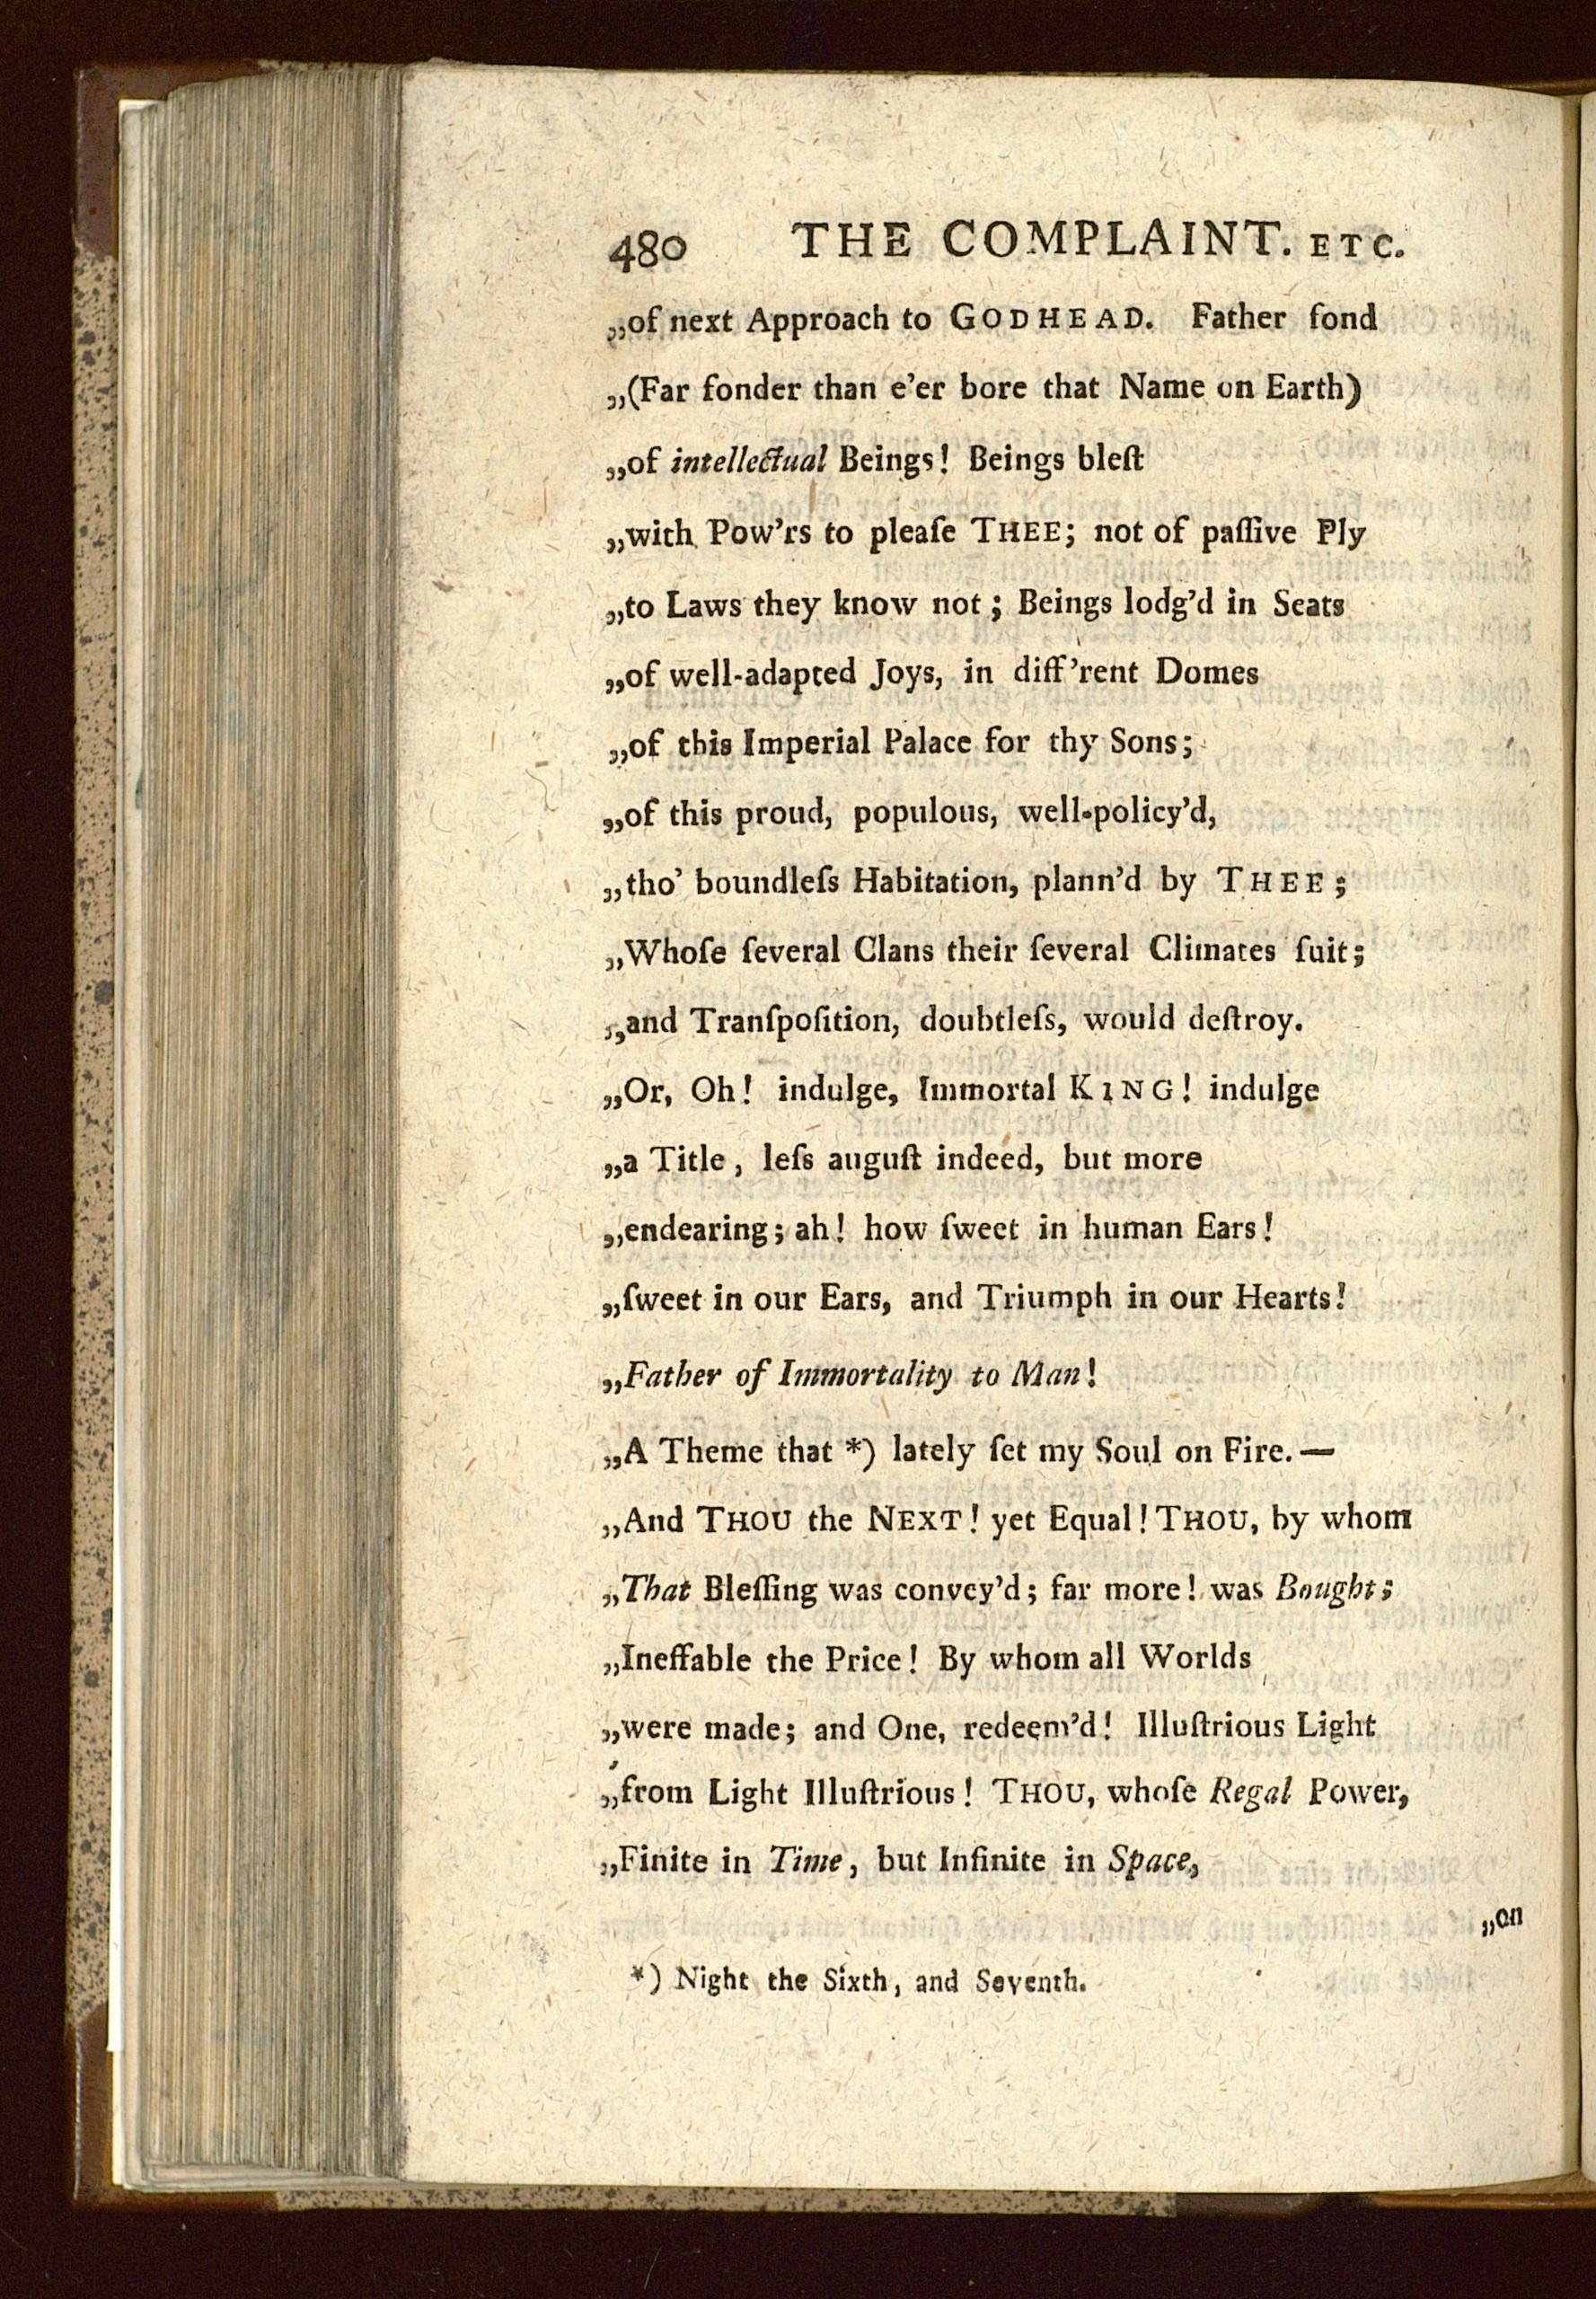 480 THE COMPLAINT. ETC.
„of next Approach to GODHEAD. Father fond
„(Far fonder than e'er bore that Name on Earth)
„of intellectual Beings! Beings bleſt
„with Pow'rs to pleaſe THEE; not of paſſive Ply
„to Laws they know not; Beings lodg'd in Seats
„of well-adapted Joys, in diff'rent Domes
„of this Imperial Palace for thy Sons;
„of this proud, populous, well-policy'd,
„tho' boundleſs Habitation, plann'd by THEE;
„Whoſe ſeveral Clans their ſeveral Climates ſuit;
„and Tranſpoſition, doubtleſs, would deſtroy.
„Or, Oh! indulge, Immortal KING! indulge
„a Title, leſs auguſt indeed, but more
„endearing; ah! how ſweet in human Ears!
„ſweet in our Ears, and Triumph in our Hearts!
„Father of Immortality to Man!
„A Theme that *) lately ſet my Soul on Fire.—
„And THOU the NEXT! yet Equal! THOU, by whom
„That Bleſſing was convey'd; far more! was Bought;
„Ineffable the Price! By whom all Worlds
„were made; and One, redeem'd! Illuſtrious Light
„from Light Illuſtrious! THOU, whoſe Regal Power,
„Finite in Time, but Infinite in Space,
„on
*) Night the Sixth, and Seventh.